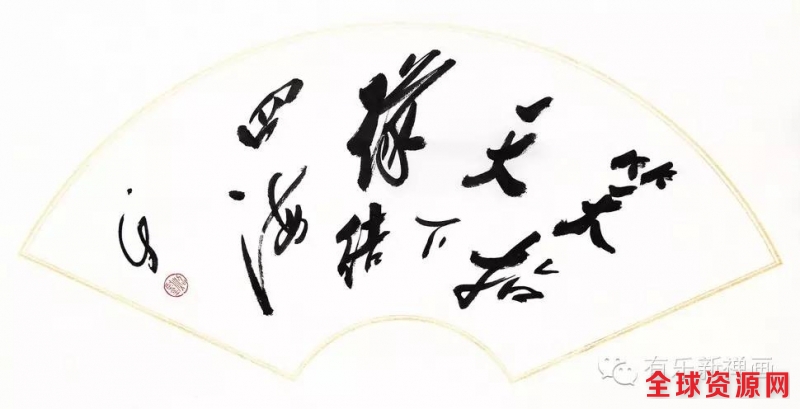 笑
天下
缘结
四海
有乐新禅画
全球资源网